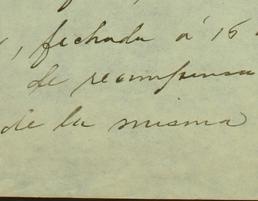 , fechada á 15
de recompensa
de la misma